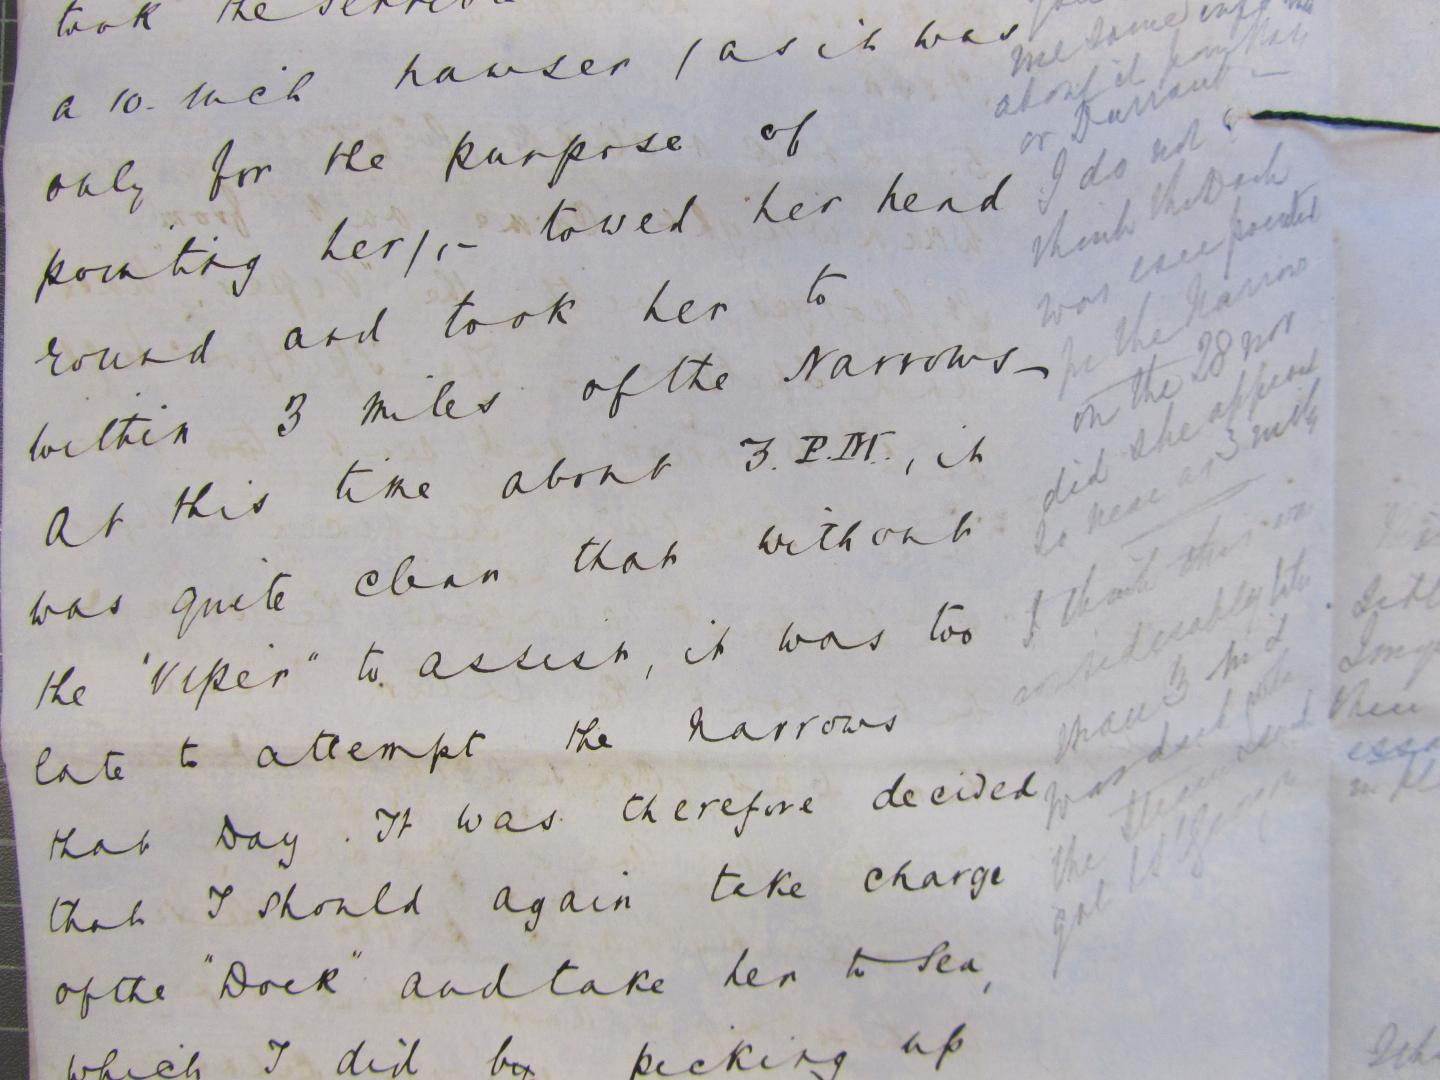 took the
a 10. inch hawser (as it was
only for the purpose of
pointing her),- towed her head
round and took her to
within 3 miles of the Narrows_
At this time about 3. P.M., it
was quite clear that without
the "Viper" to assist, it was too
late to attempt the narrows
that Day. It was therefore decided
that I should again take charge
of the "Dock" and take her to Sea,
which I did by picking up
me some info
about it from
or Durrant —
I do not
think the Dock
was ever pointed
for the Narrows
on the 28 nor
did she appear
so near as 3 miles
I think this is
considerably
than 3 m
was dark
the steam
got